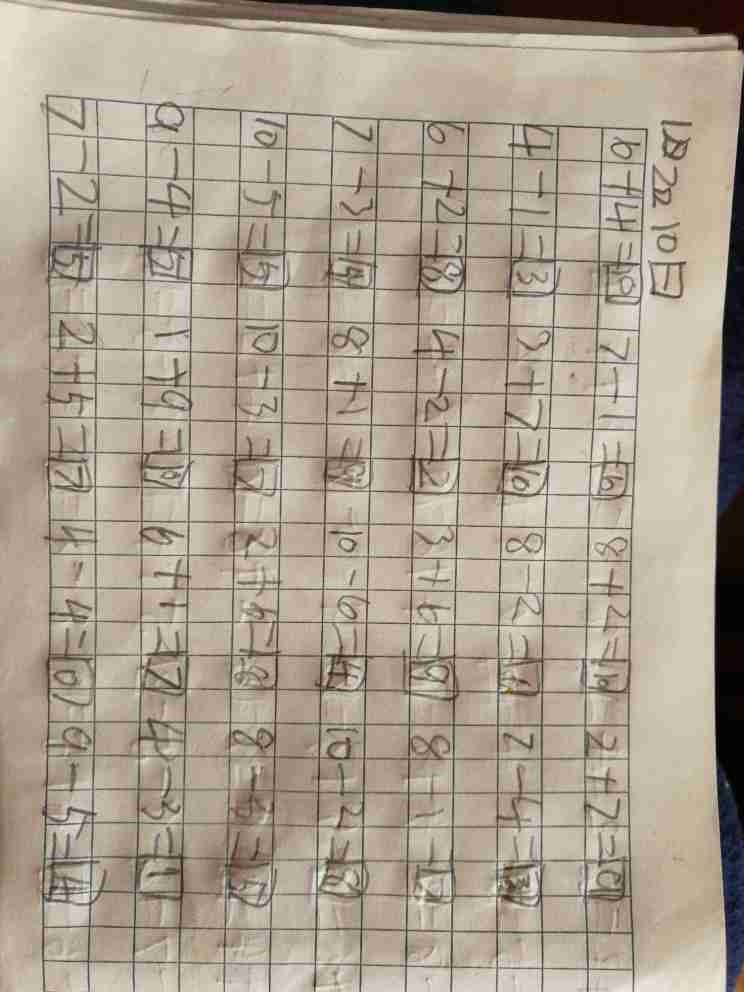 10日
6+4=10 7-1=6 8+2=10 2+7=9
4-1=3 3+7=10 8-2=6 7-4=3
6+2=8 4-2=2 3+6=9 8-1=7
7-3=4 8+1=9 10-6=4 10-2=8
10-5=5 10-3=7 2+6=8 8-3=5
9-4=5 1+9=10 6+1=7 4-3=1
7-2=5 2+5=7 4-4=0 9-5=4